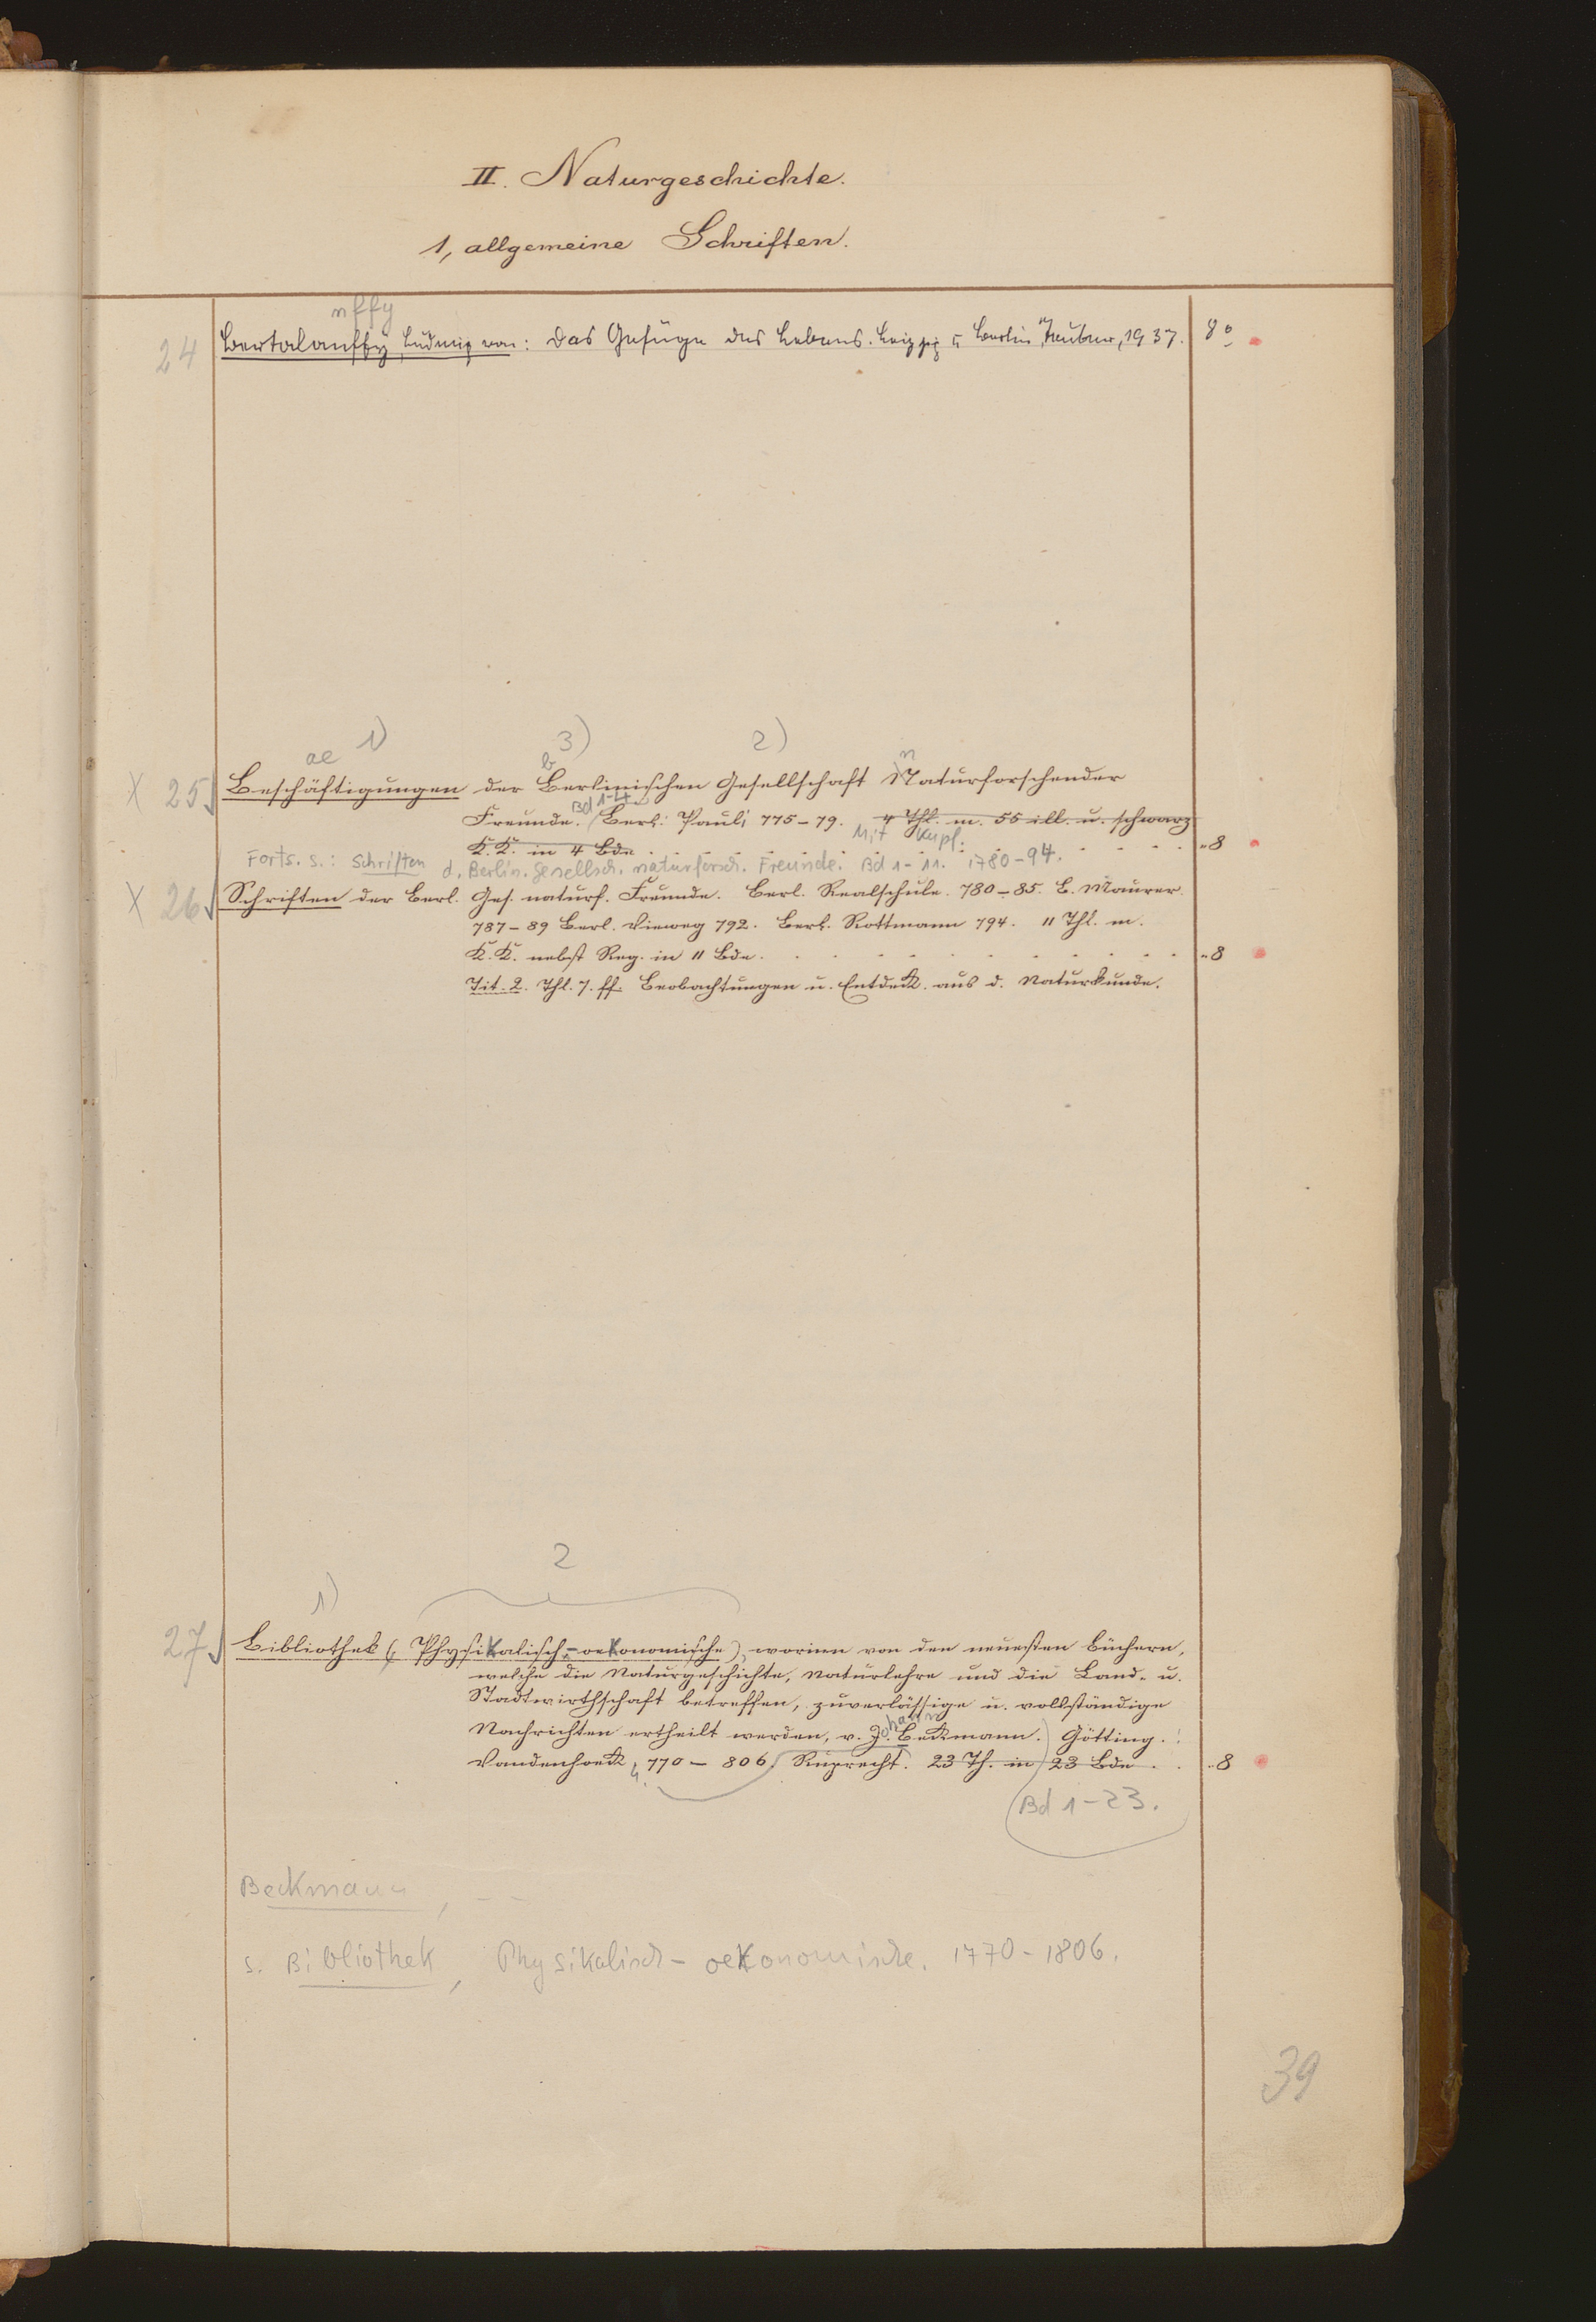 II. Naturgeschichte.
1, allgemeine Schriften.
nffy
24 Bertalanffy, Ludwig von: Das Gefüge des Lebens. Leipzig u. Berlin, Teubner, 1937. 8°
ae 1) 3) 2)
b n
X 25 Beschäftigungen der Berlinischen Gesellschaft Naturforschender
Bd 1-4
Freunde. Berl. Pauli 775-79. 4 Thl. m. 55 ill. u. schwarz
Mit Kupf.
K.K. in 4 Bde. 8
Forts. s.: Schriften d. Berlin. Gesellsch. naturforsch. Freunde. Bd 1-11. 1780-94.
X 26 Schriften der Berl. Ges. naturf. Freunde. Berl. Realschule. 780-85. E. Maurer.
787-89 Berl. Vieweg 792. Berl. Rottmann 794. 11 Thl. m.
K.K. nebst Reg. in 11 Bde. 8
Tit. 2. Thl. 7. ff. Beobachtungen u. Entdeck. aus d. Naturkunde.
2
1)
27 Bibliothek (Physikalisch-oekonomische), worinn von den neuesten Büchern,
welche die Naturgeschichte, Naturlehre und die Land- u.
Stadtwirthschaft betreffen, zuverlässige u. vollständige
Nachrichten ertheilt werden, v. Johann Beckmann. Götting.
Vandenhoeck, 770-806. Ruprecht. 23 Th. in 23 Bde. 8
Bd 1-23.
Beckmann, - -
s. Bibliothek, Physikalisch-oekonomische. 1770-1806.
39